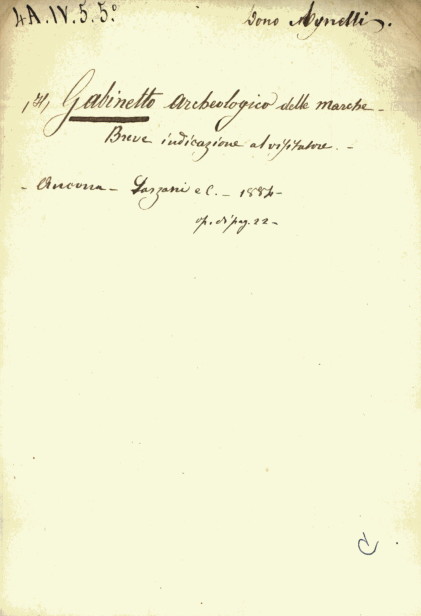 4A.IV.5.5º
Dono Mynelli.
Gabinetto archeologico delle marche -
Breve indicazione al visitatore. -
- Ancona - e C. - 1884 -
op. di pag. 22 -